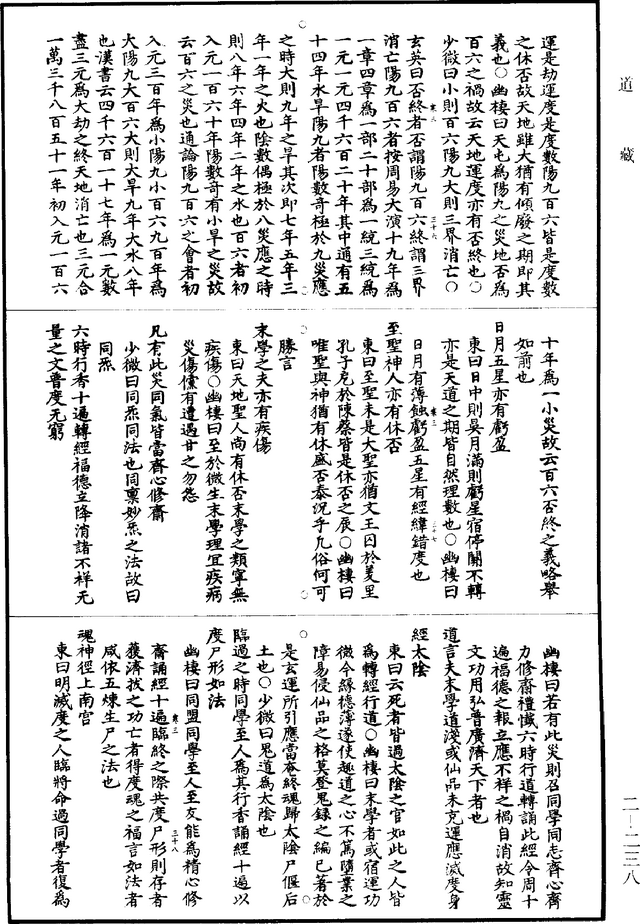 道藏
運是劫運度是度數陽九百六皆是度數
之休否故天地雖大猶有傾廢之期即其
義也○幽棲曰天屯為陽九之災地否為
百六之禍故云天地運度亦有否終也○
少微曰小則百六陽九大則三界消亡○
玄英曰否終者否謂陽九百六終謂三界
消亡陽九百六者按周易大演十九年為
一章四章為一部二十部為一統三統為
一元一元四千六百二十年其中適有五
十四年水旱陽九者陽數奇極於九災應
之時大則九年之旱其次即七年五年三
年一年之火也陰數偶極於八災應之時
則八年六年四年二年之水也百六者初
入元一百六十年陽數奇有小旱之災故
云百六之災也通論陽九百六之會者初
入元三百年為小陽九小百六九百年為
大陽九大百六大則大旱九年大水八年
也漢書云四千六百一十七年為一元數
盡三元為大劫之終天地消亡也三元合
一萬三千八百五十一年初入元一百六
十年為一小災故云百六否終之義略舉
如前也
日月五星亦有虧盈
東曰日中則昃月滿則虧星宿停關不轉
亦是天道之期皆自然理數也○幽棲曰
日月有薄蝕虧盈五星有經緯錯度也
至聖神人亦有休否
東曰至聖未是大聖亦猶文王囚於羑里
孔子危於陳蔡皆是休否之辰○幽棲曰
唯聖與神猶有休盛否泰況乎凡俗何可
勝言
末學之夫亦有疾傷
東曰天地聖人尚有休否末學之類寧無
疾傷○幽棲曰至於微生末學理宜疾病
災傷儻有遭遇甘之勿怨
凡有此災同氣皆當齋心修齋
少微曰同炁同法也同稟妙炁之法故曰
同炁
六時行香十遍轉經福德立降消諸不祥无
量之文普度无窮
幽棲曰若有此災則召同學同志齋心齊
力修齋禮懺六時行道轉誦此經令周十
遍福德之報立應不祥之禍自消故知靈
文功用弘普廣濟天下者也
道言夫末學道淺或仙品未充運應滅度身
經太陰
東曰云死者皆過太陰之官如此之人皆
為轉經行道○幽棲曰末學者或宿運功
微今緣德薄遂使趣道之心不篤隨業之
障易侵仙品之格莫登鬼錄之編已著於
是玄運所引應當奄終魂歸太陰尸偃后
土也○少微曰鬼道為太陰也
臨過之時同學至人為其行香誦經十遍以
度尸形如法
幽棲曰同盟同學至人至友能為精心修
齋誦經十遍臨終之際共度尸形則存者
獲濟拔之功亡者得度魂之福言如法者
咸依五煉生尸之法也
魂神徑上南宮
東曰明滅度之人臨將命過同學者復為
二－二三八